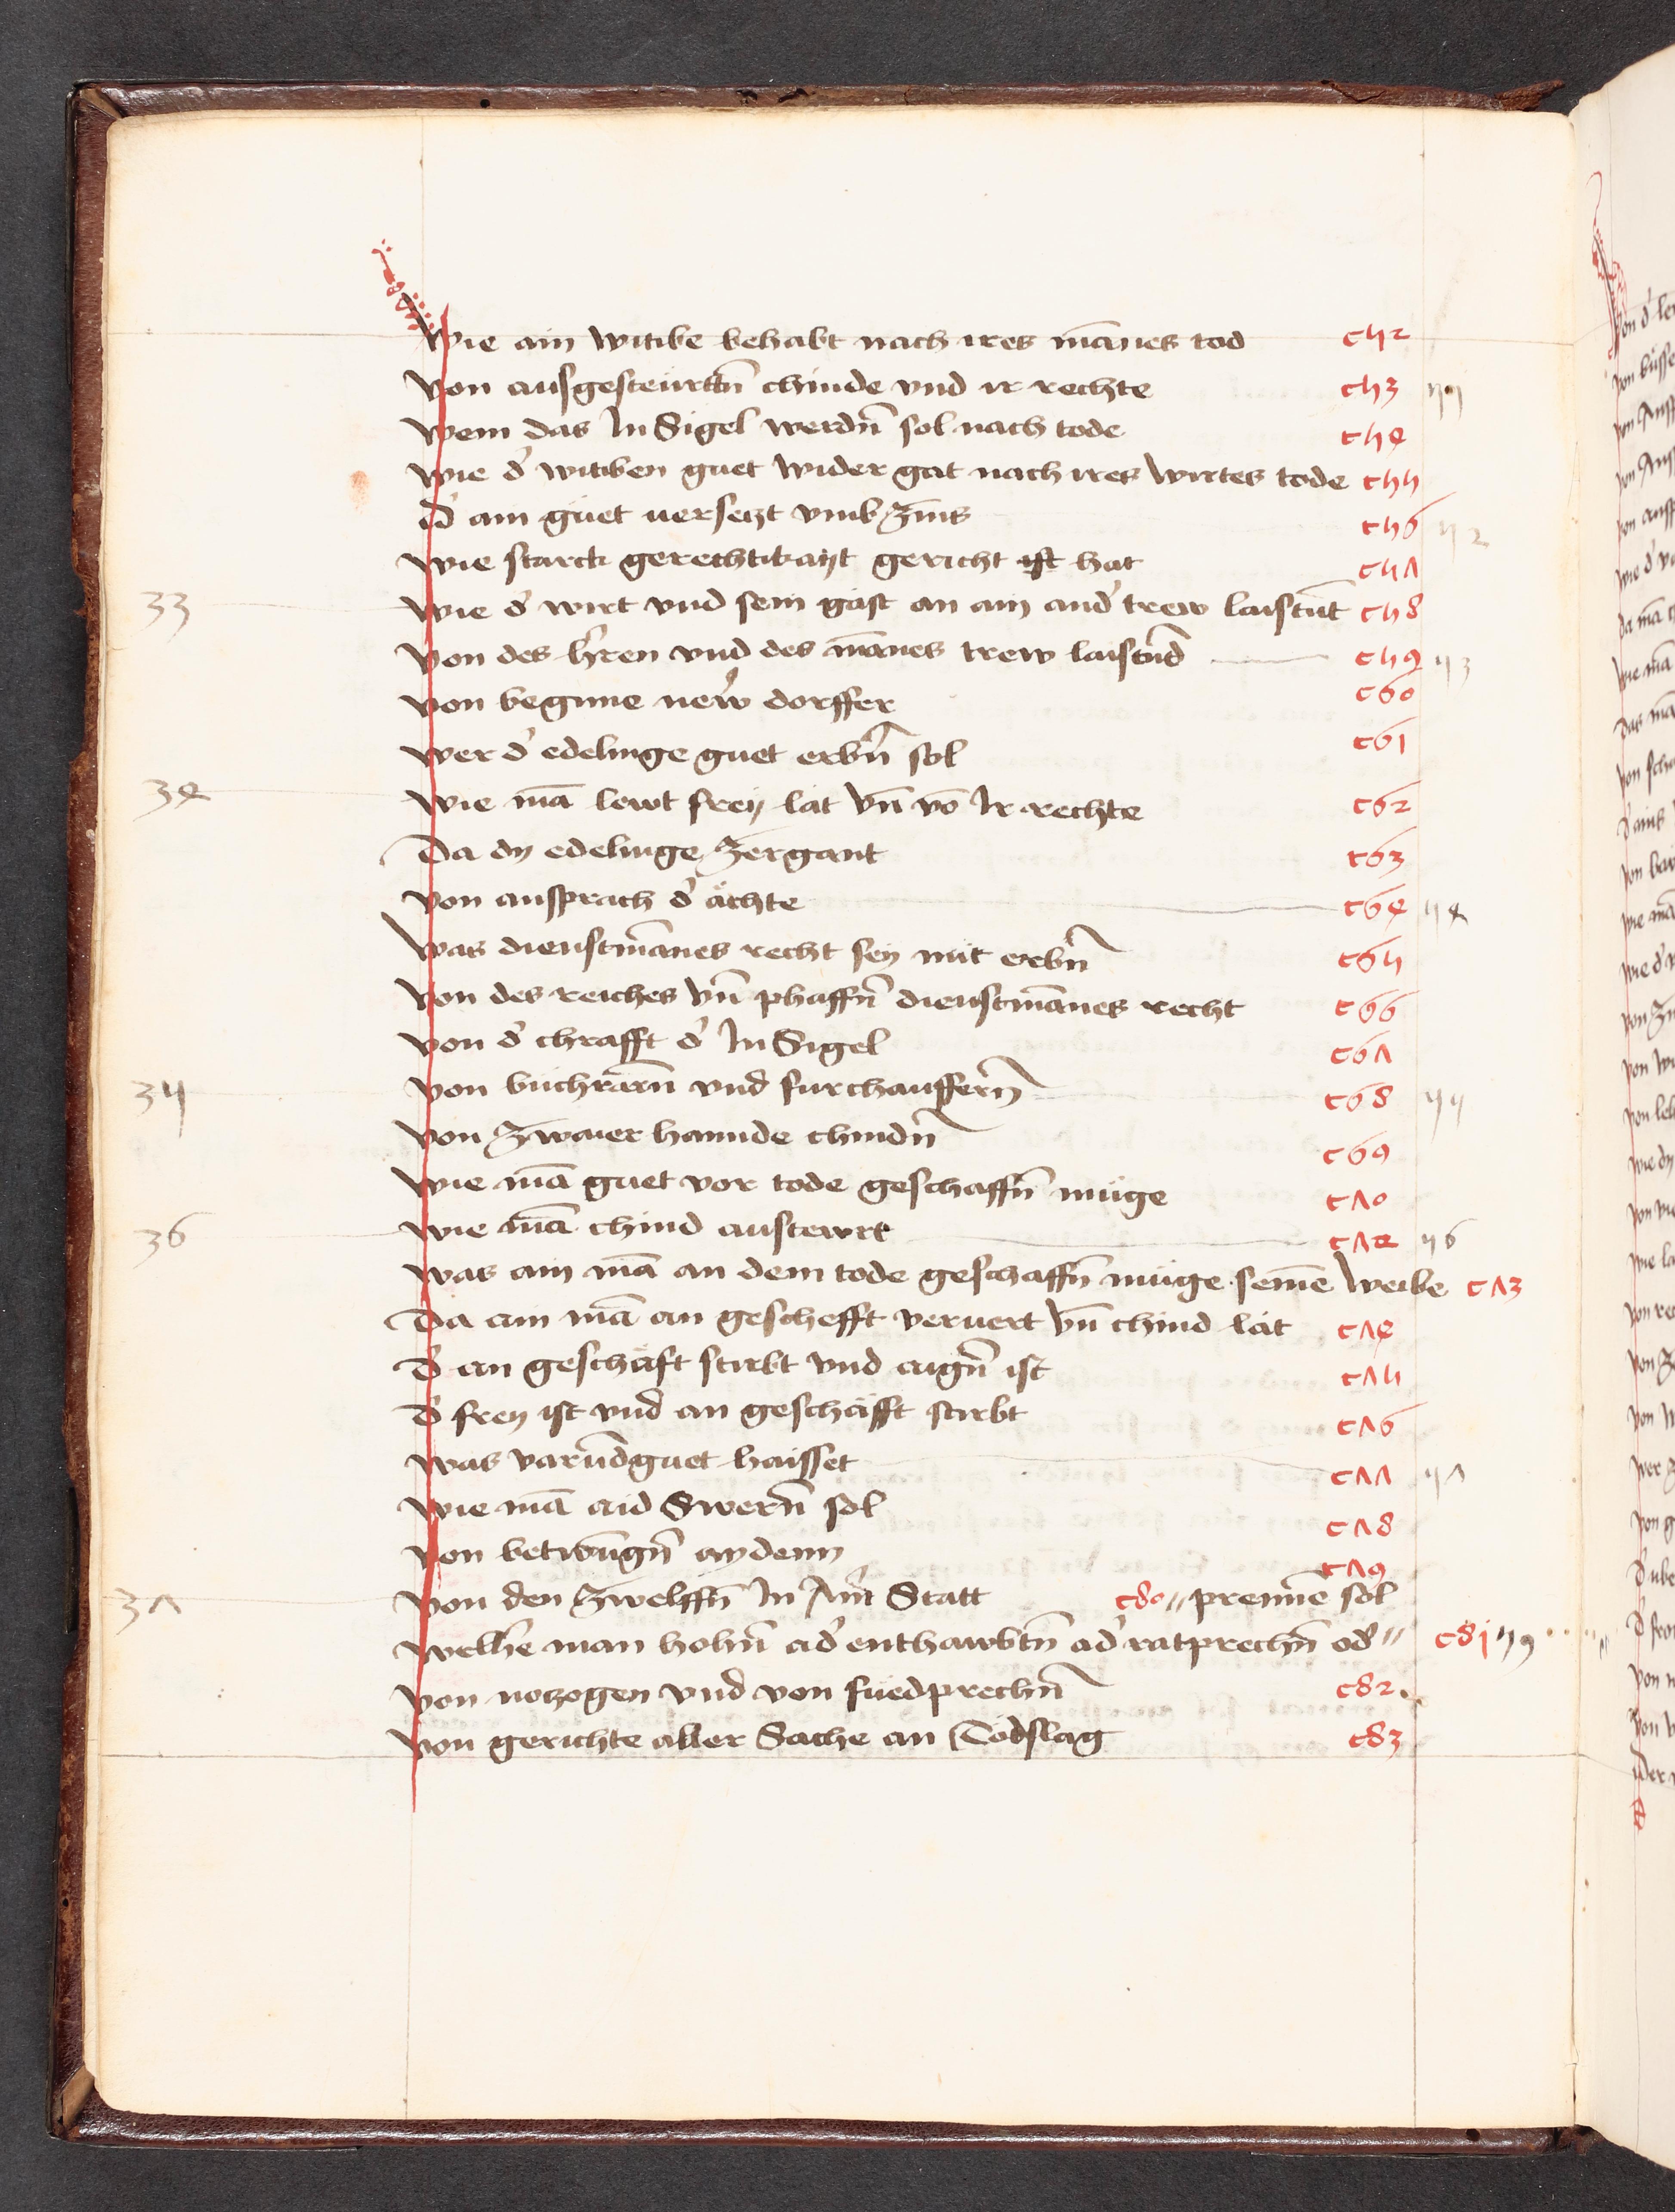 Wie ain witibe behabt nach ires mānes tod c52
Von ausgesteürttn̄ chinde vnd ir rechte c53
Wem das InSigel werdn̄ sol nach tode c54
Wie d' witiben guet wider gat nach ires wirtes tode c55
D' ain güet uersetzt vmb Zins c56
Wie starck gerechtikayt gericht hat c57
33 Wie d' wirt vnd sein gast an ain and' trew laistn̄t c58
Von des h'ren vnd des mānes trew laistn̄d c59 53
Von beginne new' dorffer c60
Wer d' edelinge guet erbn̄ sol c61
34 Wie mā lewt freÿ lät vn̄ vō Ir rechte c62
Da dy edelinge Zergant c63
Von ansprach d' ächte c64 54
Was dienstmānes recht sey mit erbn̄ c65
Von des reiches vn̄ phaffn̄ dienstmānes recht c66
Von d' chrafft d' InSigel c67
35 Von büchrärn̄ vnd furchauffern̄ c68 55
Von Zwaier hannde chindn̄ c69
Wie mā guet vor tode geschaffn̄ müge c70
36 Wie mā chind austewrt c72 56
Was ain mā an dem tode geschaffn̄ müge seinē weibe c73
Da ain mā an geschefft veruert vn̄ chind lät c74
D' an geschäft stirbt vnd aign̄ ist c75
D' frey ist vnd an geschäfft stirbt c76
Was varn̄dguet haisset c77 57
Wie mā aid Swern̄ sol c78
Von betwūgn̄ aydenn c79
37 Von den Zwelffn̄ In Ain' Statt c80 // prennē sol
Welhē man hohn̄ ad' enthawbtn̄ ad' ratprechn̄ od' // c81 59
Von notzogen vnd von füedprechn̄ c82
Von gerichte aller Sache an Todslag c83